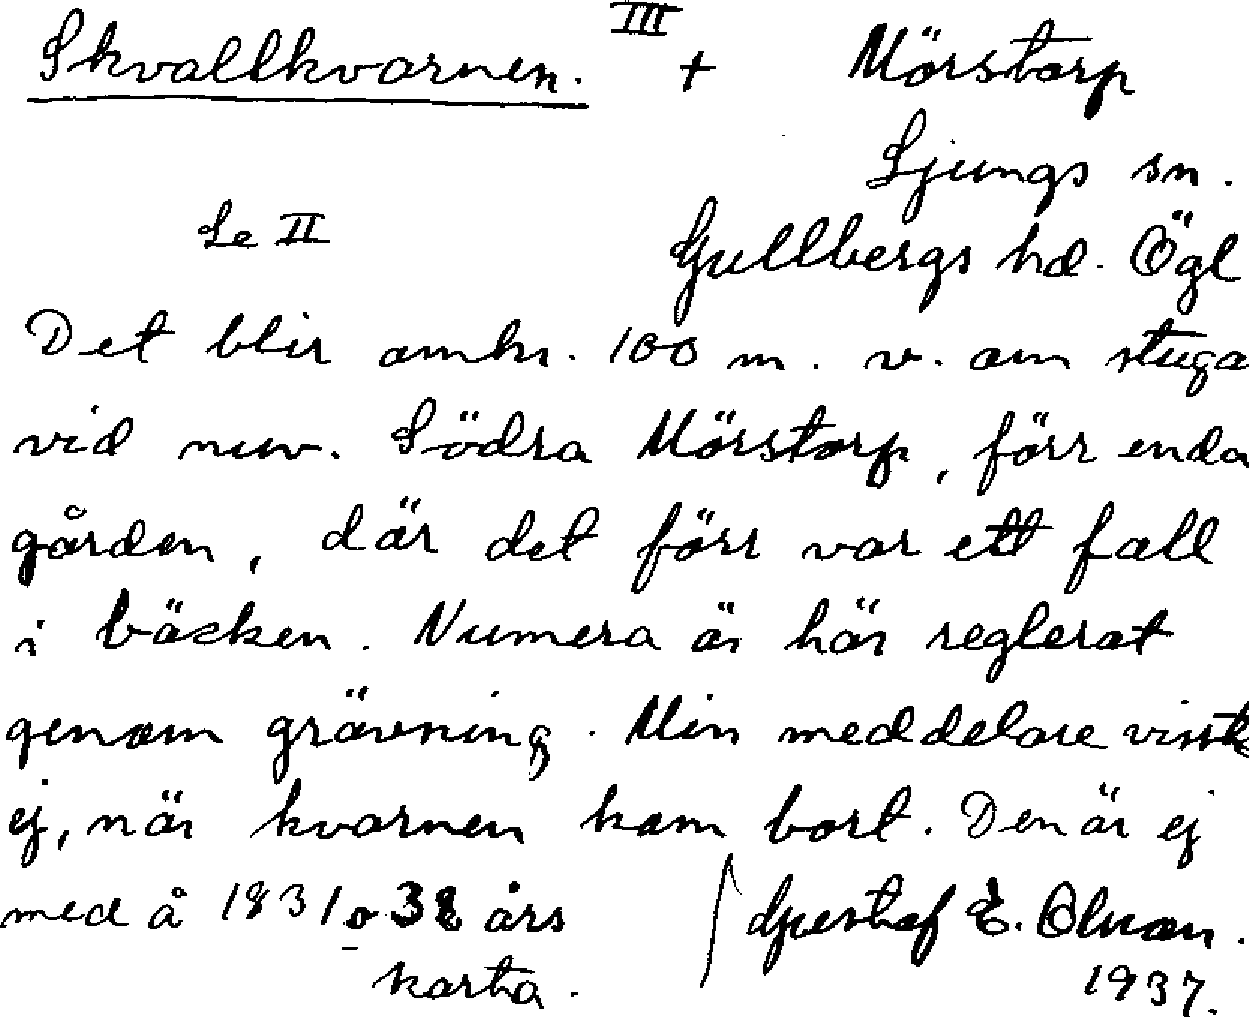 Skvallkvarnen. III + Mörstorp
Ljungs sn.
Se II Gullbergs hd. Ögl
Det blir omkr. 100 m. v. om stuga
vid nuv. Södra Mörstorp, förr enda
gården, där det förr var ett fall
i bäcken. Numera är här reglerat
genom grävning. Min meddelare visste
ej, när kvarnen kom bort. Den är ej
med å 1831 o 32 års
karta.
Gustaf E. Olson.
1937.